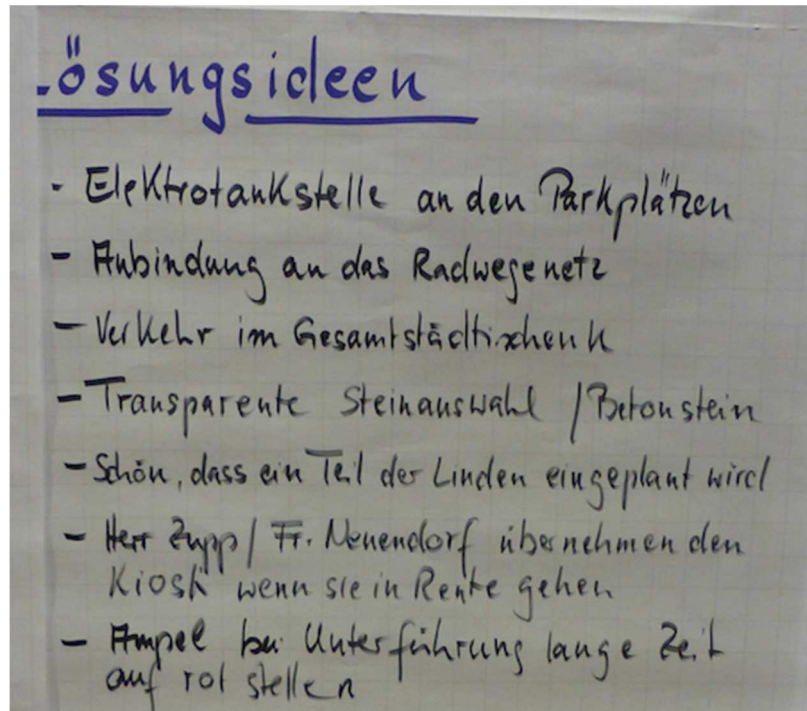 Lösungsideen
- Elektrotankstelle an den Parkplätzen
- Anbindung an das Radwegenetz
- Verkehr im Gesamtstädtischen K
- Transparente Steinauswahl / Betonstein
- Schön, dass ein Teil der Linden eingeplant wird
- Herr Zupp / Fr. Neuendorf übernehmen den
Kiosk wenn sie in Rente gehen
- Ampel bei Unterführung lange Zeit
auf rot stellen